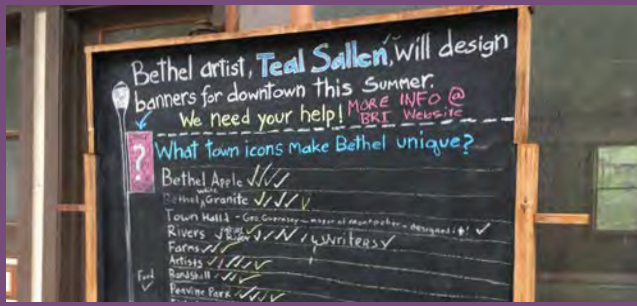 Bethel artist, Teal Sallen, will design
banners for downtown this Summer.
We need your help! MORE INFO @
BRI Website
?
What town icons make Bethel unique?
Bethel Apple
Bethel white Granite
Town Hall - Geo. Guernsey - mayor of Montpelier - designed it!
Rivers Writers
Farms
Artists
Food
Bandshell
Peavine Park